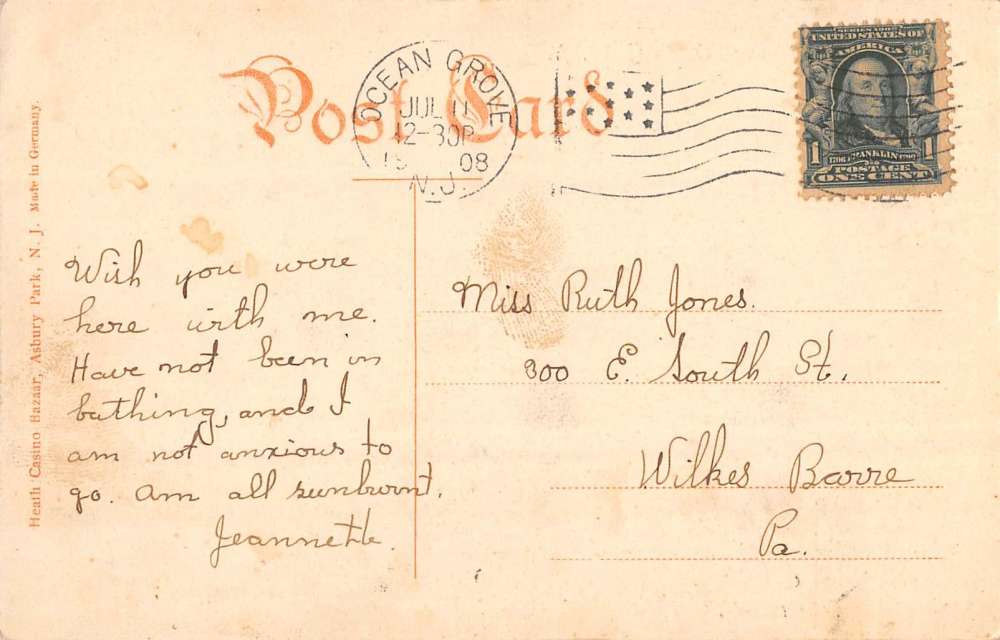 Post Card
OCEAN GROVE
JUL 11
12-30P
19 08
N.J.
SERIES 1902
UNITED STATES OF
AMERICA
1 1706 FRANKLIN 1790 1
POSTAGE
ONE CENT
Heath Casino Bazaar, Asbury Park, N. J. Made in Germany.
Wish you were
here with me.
Have not been in
bathing, and I
am not anxious to
go. Am all sunburnt.
Jeannette.
Miss Ruth Jones.
300 E. South St.
Wilkes Barre
Pa.